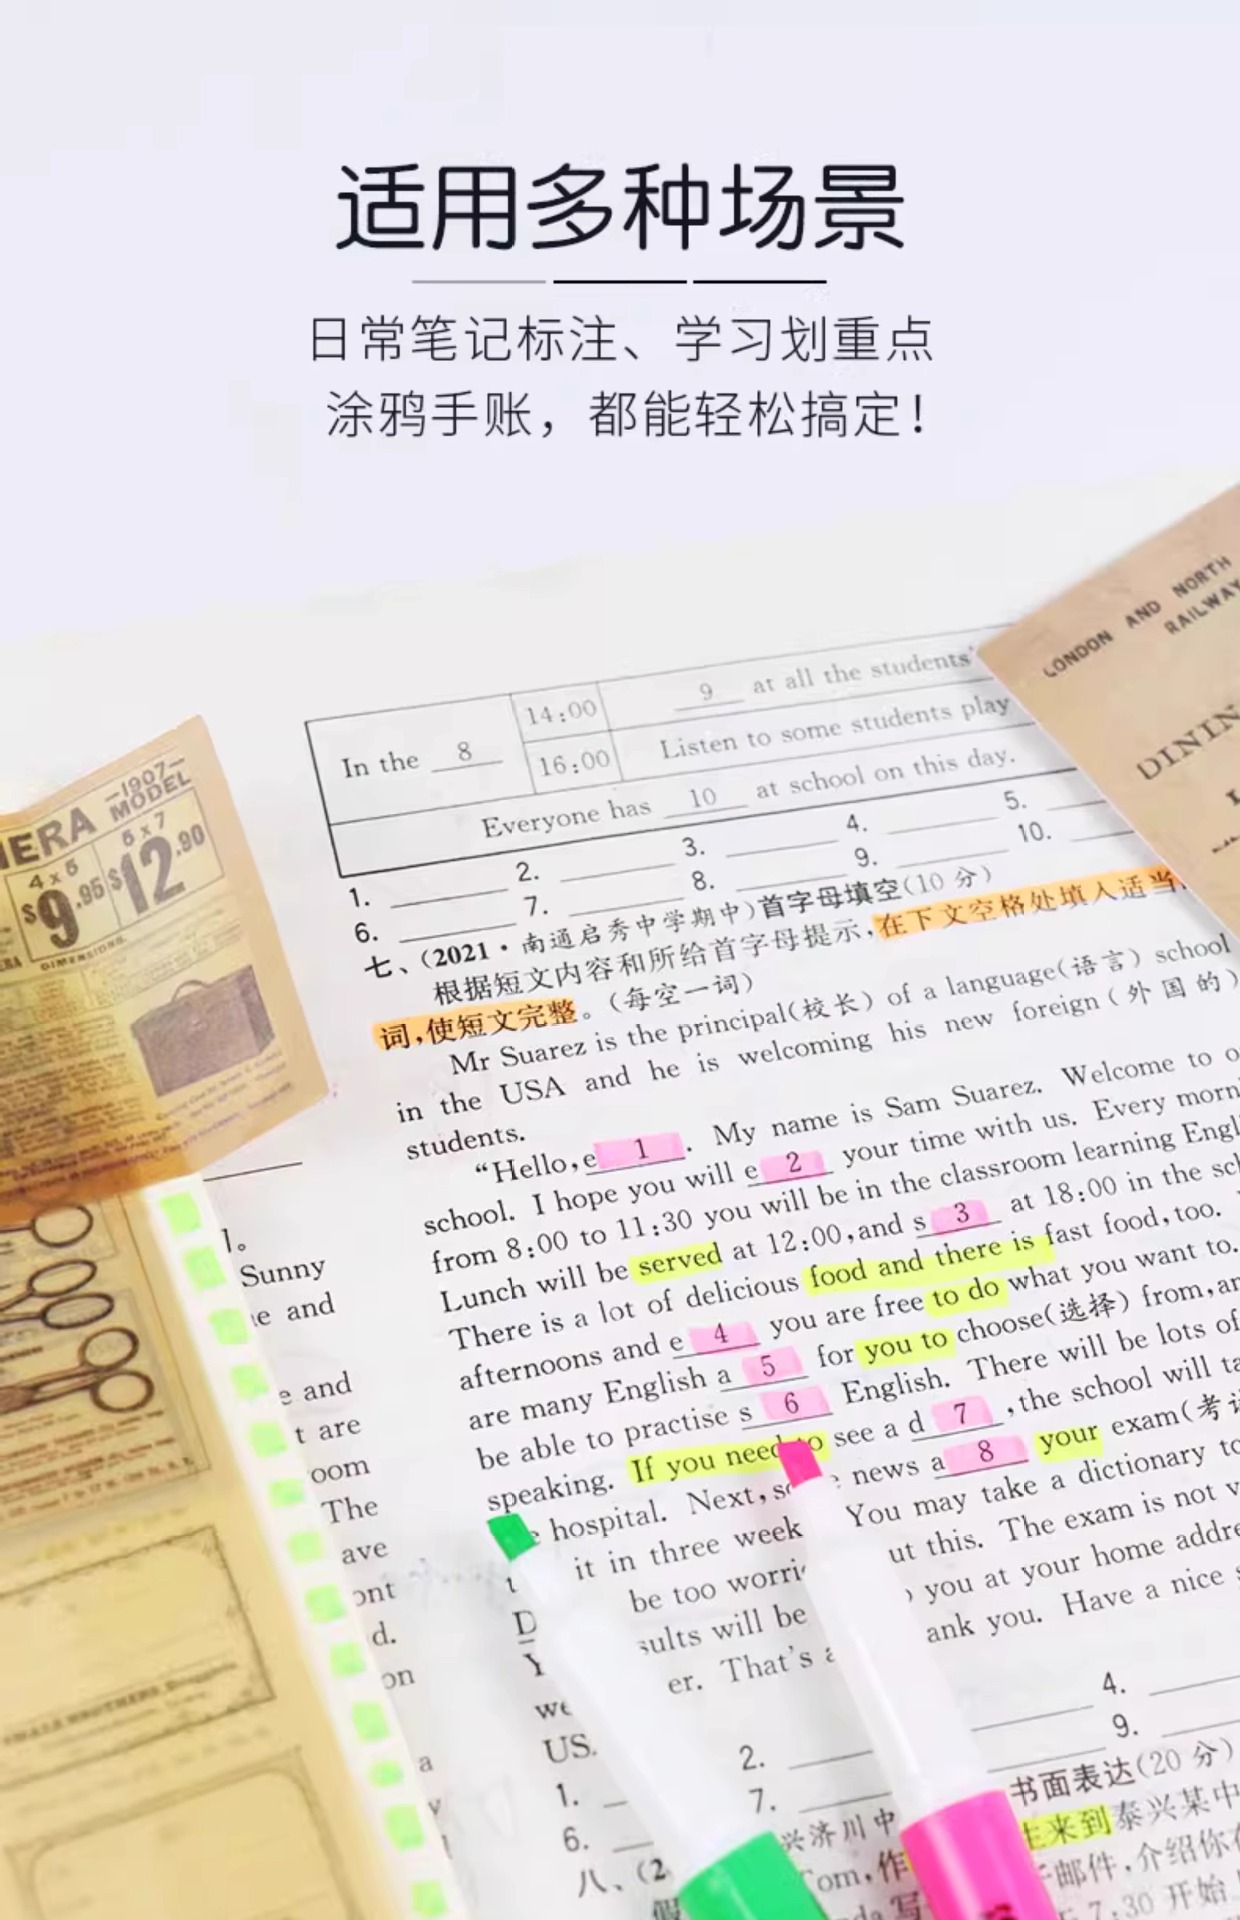 适用多种场景
日常笔记标注、学习划重点
涂鸦手账，都能轻松搞定！
LONDON AND NORTH
RAILWAY
DININ
In the 8
14:00
9 at all the students'
16:00
Listen to some students play
Everyone has 10 at school on this day.
1. 2. 3. 4. 5.
6. 7. 8. 9. 10.
七、(2021·南通启秀中学期中)首字母填空(10分)
根据短文内容和所给首字母提示,在下文空格处填入适当
词,使短文完整。(每空一词)
Mr Suarez is the principal(校长) of a language(语言) school
in the USA and he is welcoming his new foreign(外国的)
students.
“Hello,e 1 . My name is Sam Suarez. Welcome to
school. I hope you will e 2 your time with us. Every
from 8:00 to 11:30 you will be in the classroom learning
Lunch will be served at 12:00,and s 3 at 18:00 in the
There is a lot of delicious food and there is fast food,too.
afternoons and e 4 you are free to do what you want to.
are many English a 5 for you to choose(选择) from,
be able to practise s 6 English. There will be lots of
speaking. If you need to see a d 7 ,the school will
hospital. Next, news a 8 your exam(考
it in three week You may take a dictionary
be too worri ut this. The exam is not
sults will be you at your home
er. That's ank you. Have a nice
D
Y
we
US.
1. 2. 4.
6. 7. 9.
书面表达(20分)
八、(2
兴济川中 生来到泰兴某中
Tom,作 邮件,介绍你
假 写 7:30 开始
ERA
—1907—
MODEL
4 x 5
$9.95
5 x 7
$12.90
DIMENSIONS.
l。
Sunny
e and
e and
t are
oom
The
ave
ont
d.
on
a
y